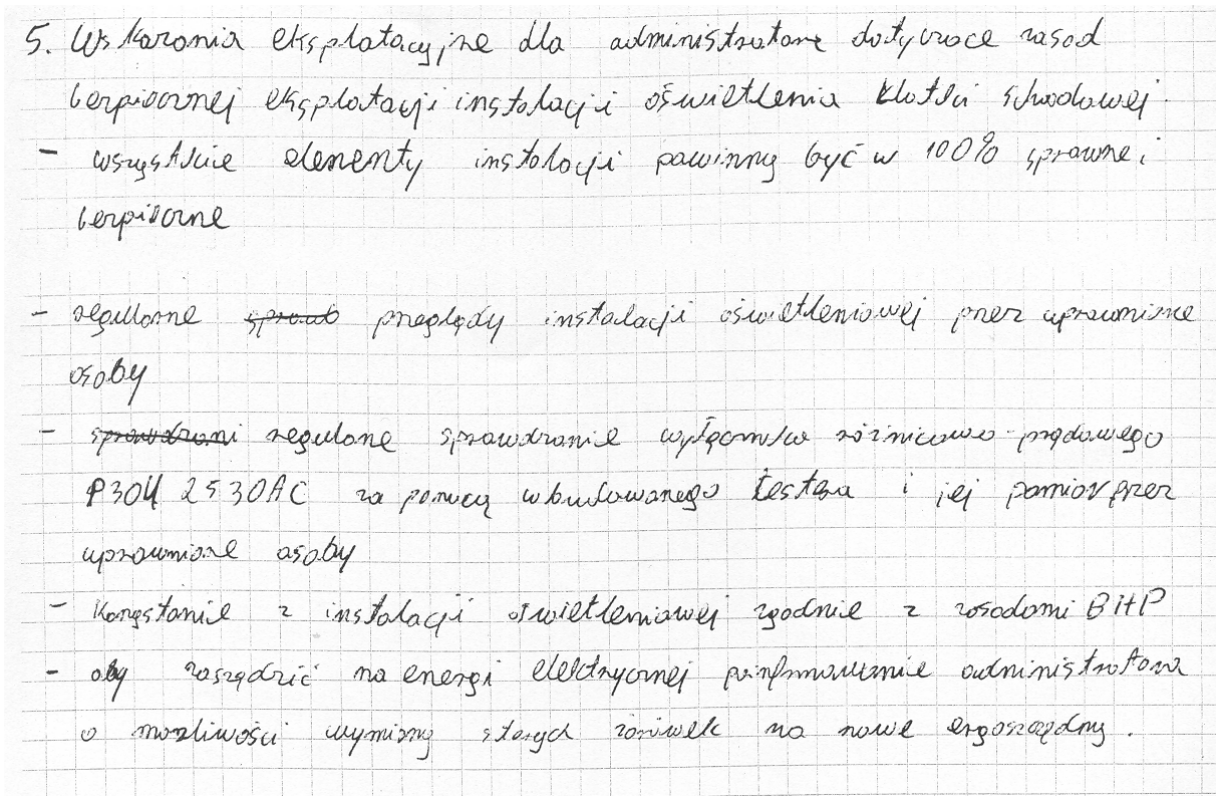 5. Wskazania eksplatacyjne dla administratora dotyczące zasad
bezpiecznej eksplatacji instalacji oświetlenia klatki schodowej.
- wszystkie elementy instalacji powinny być w 100% sprawne i
bezpieczne
- regularne spraw przeglądy instalacji oświetleniowej przez uprawnione
osoby
- sprawdzani regularne sprawdzanie wyłącznika różnicowo-prądowego
P304 2530AC za pomocą wbudowanego testera i jej pomiar przez
uprawnione osoby
- Korzystanie z instalacji oświetleniowej zgodnie z zasadami BHP
- aby zaszędzić na energi elektrycznej poinfmowanie administratora
o możliwości wymiany starych żarówek na nowe ergoszczędny.